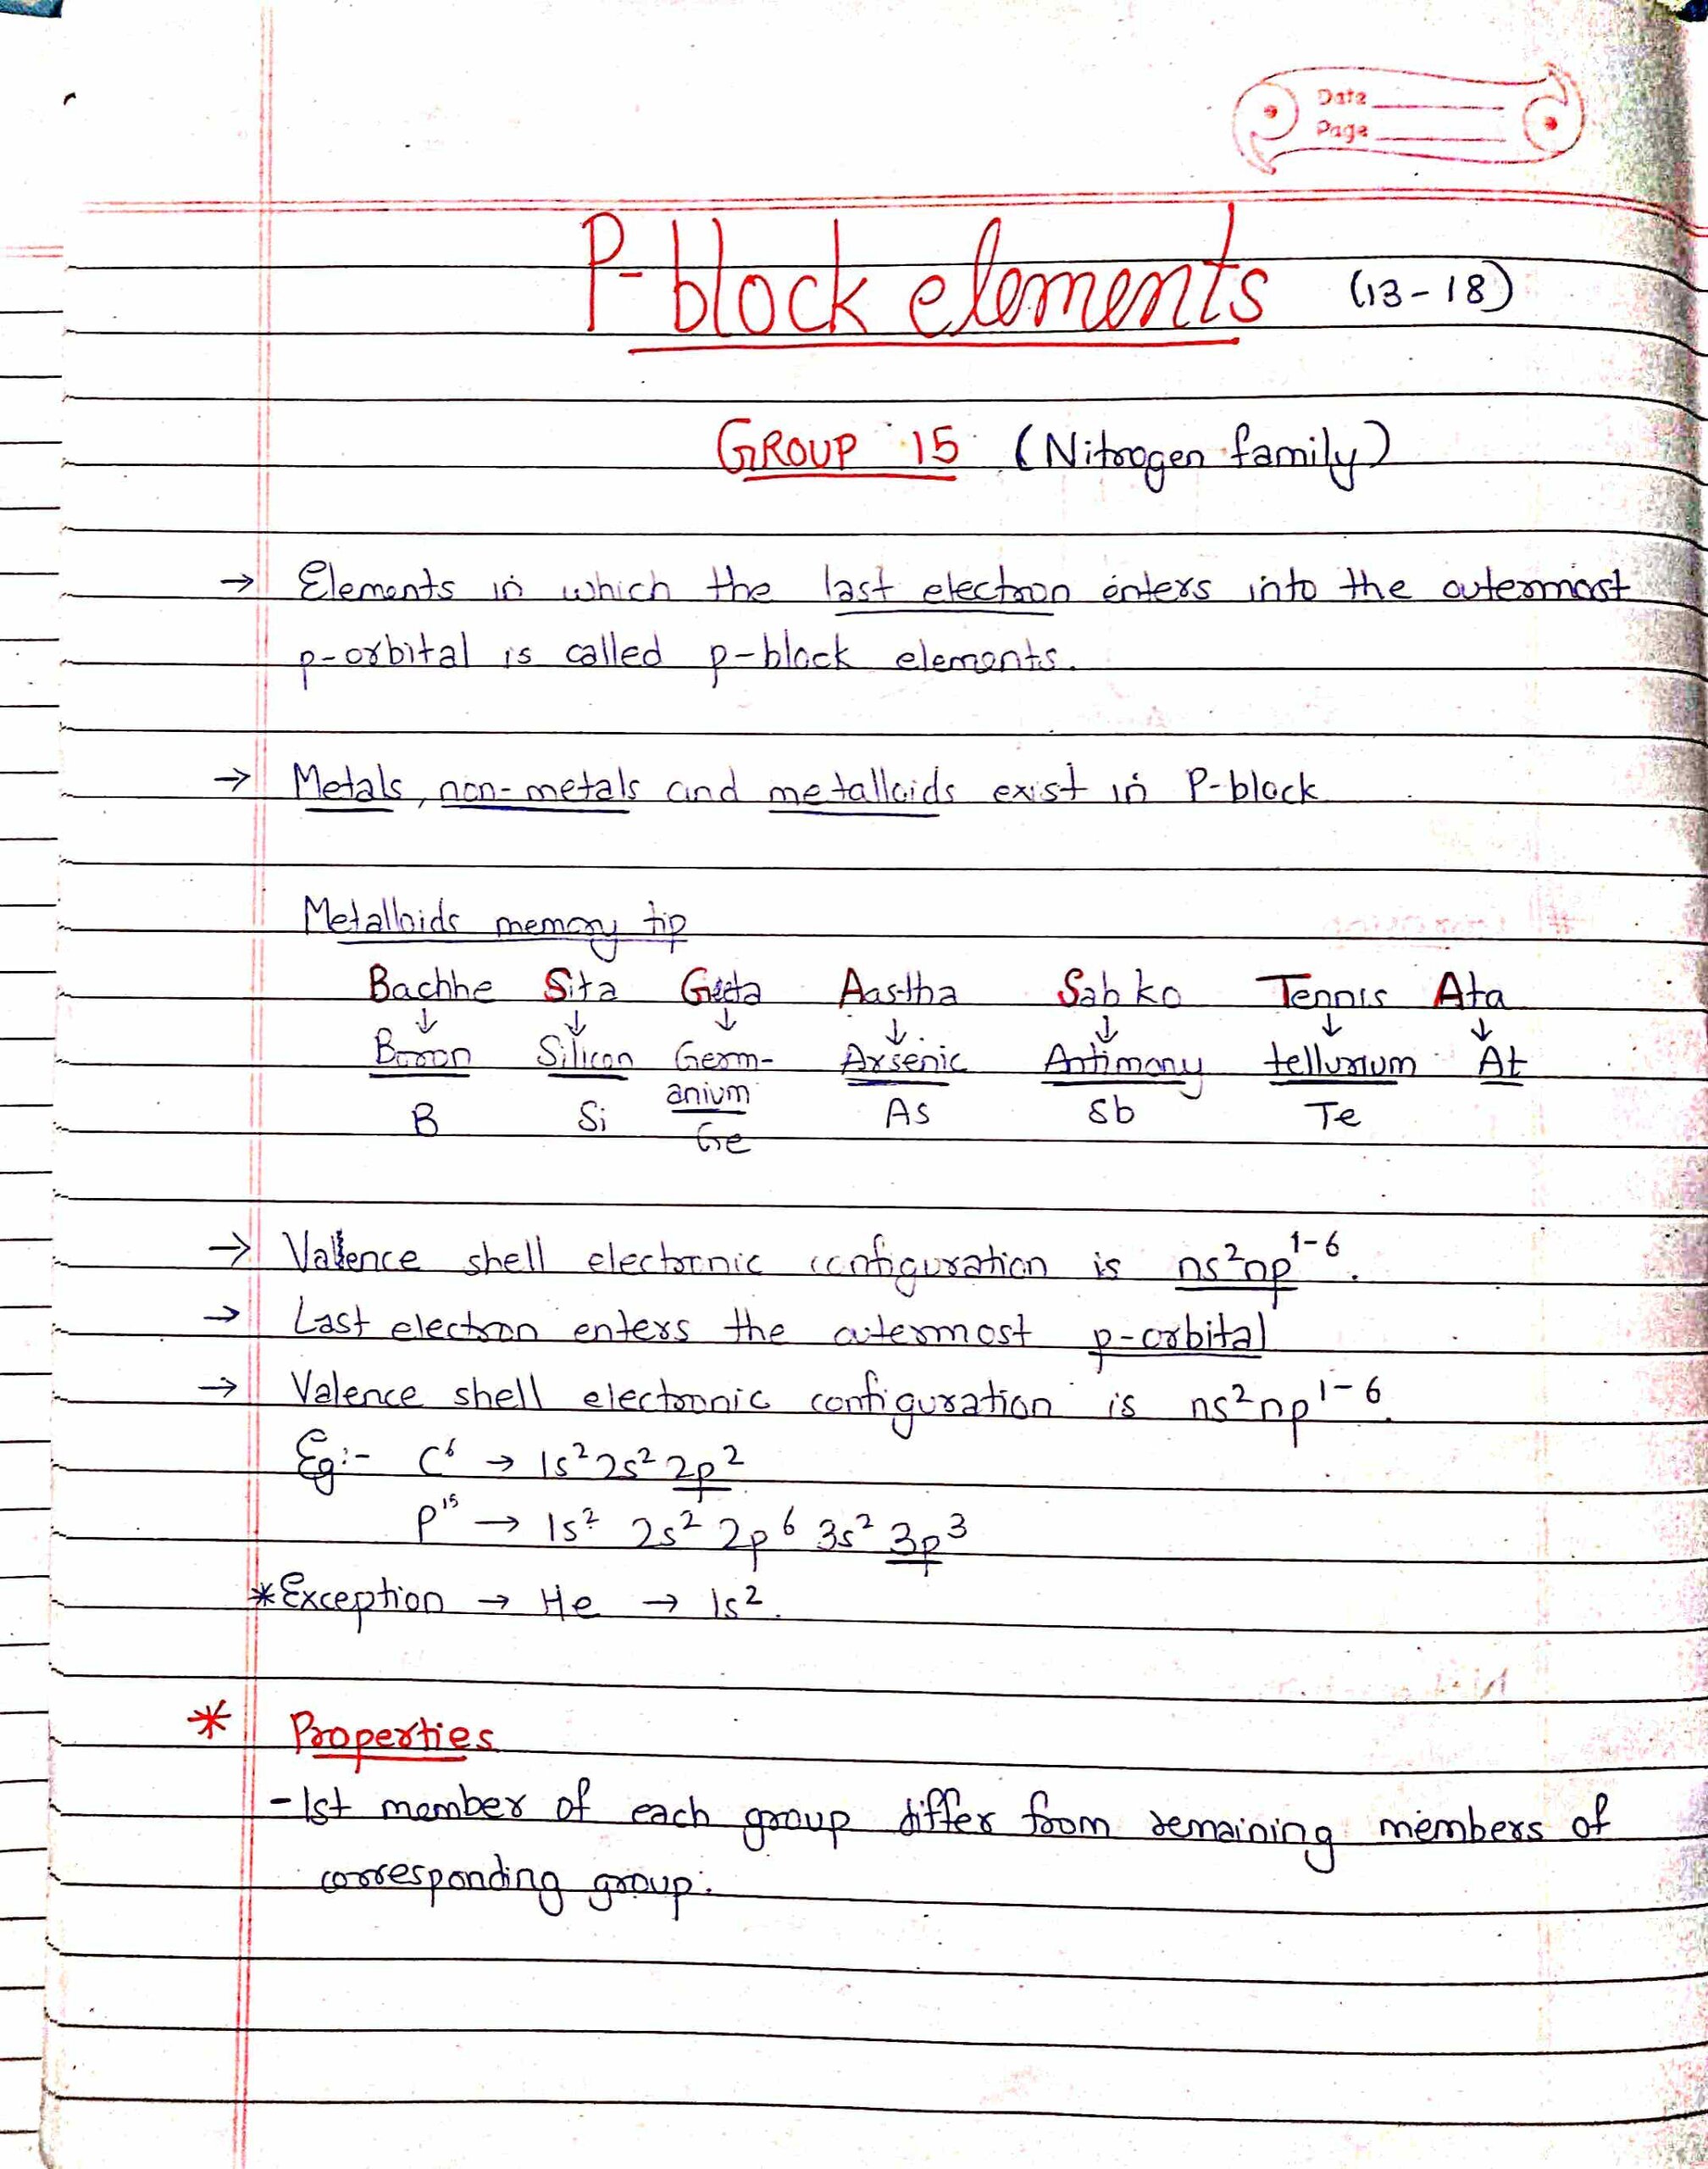 Date
Page
P-block elements (13-18)
GROUP 15 (Nitrogen family)
→ Elements in which the last electron enters into the outermost
p-orbital is called p-block elements.
→ Metals, non-metals and metalloids exist in P-block
Metalloids memory tip
Bachhe Sita Geeta Aastha Sab ko Tennis Ata
↓ ↓ ↓ ↓ ↓ ↓ ↓
Boron Silicon Germ- Arsenic Antimony tellurium At
anium
B Si Ge As Sb Te
→ Valence shell electornic configuration is ns²np¹⁻⁶.
→ Last electron enters the outermost p-orbital
→ Valence shell electronic configuration is ns²np¹⁻⁶.
Eg:- C⁶ → 1s²2s²2p²
P¹⁵ → 1s² 2s² 2p⁶ 3s² 3p³
*Exception → He → 1s².
* Properties
-1st member of each group differ from remaining members of
corresponding group.